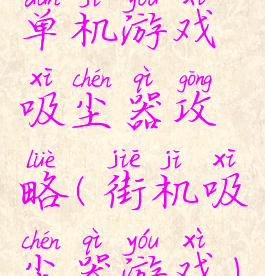 dān jī yóu xì
单机游戏
xī chén qì gōng
吸尘器攻
lüè jiē jī xī
略(街机吸
chén qì yóu xì
尘器游戏)